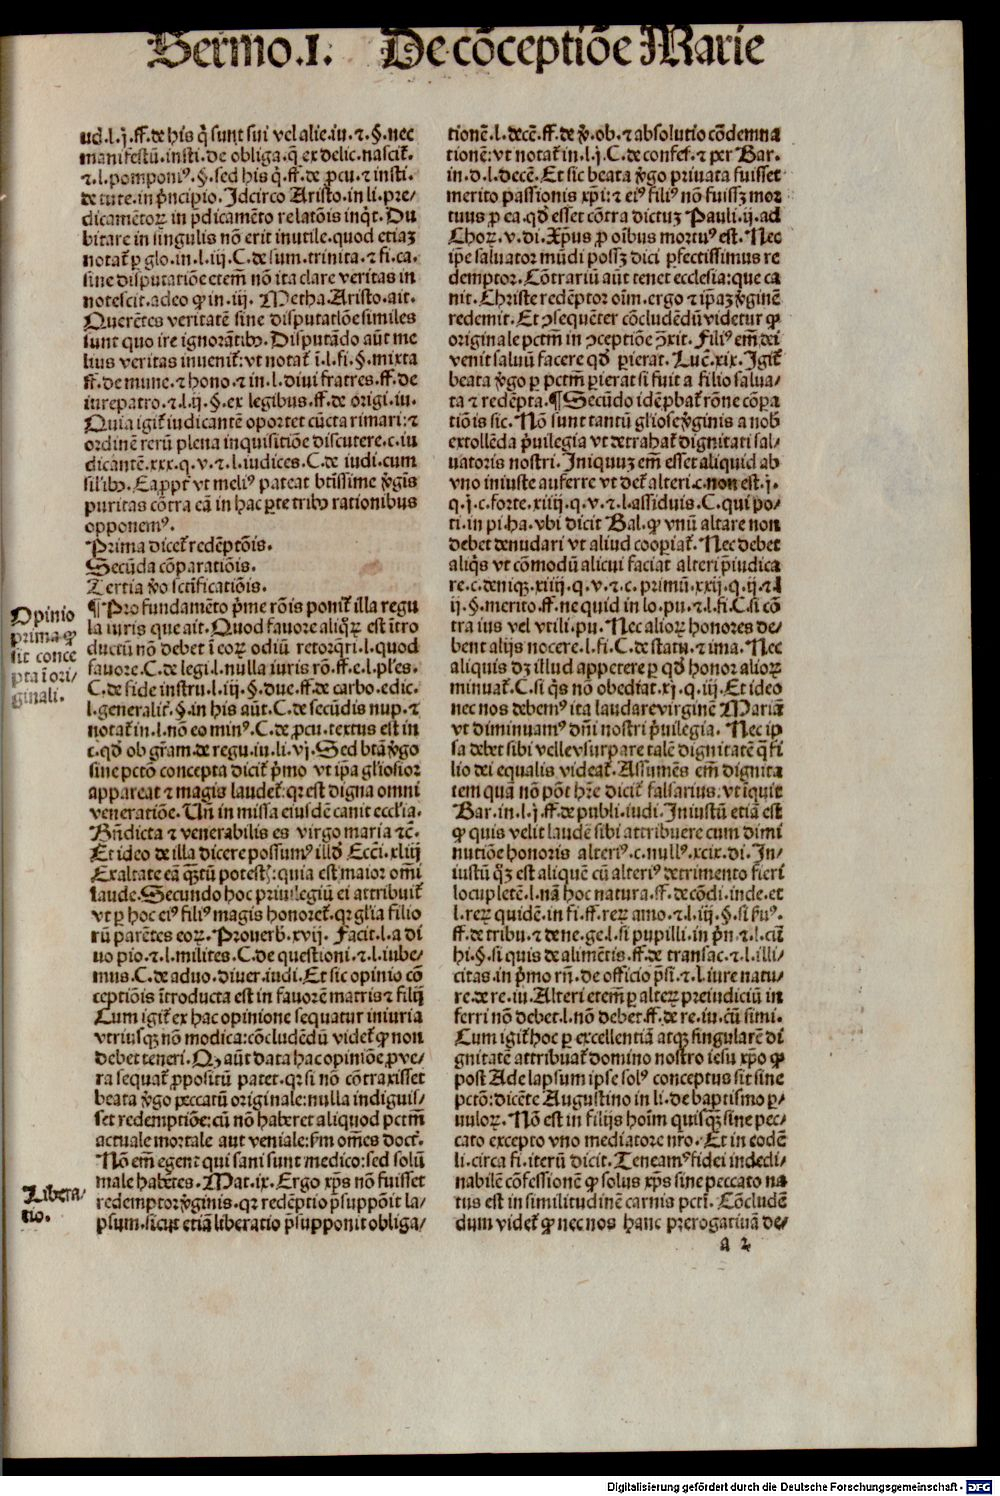 Sermo.I. De cōceptiōe Marie
ud.l.j.ff.de his q̄ sunt sui vel alie.iu.⁊.§.nec
manifestū.insti.de obliga.q̄ ex delic.nascit̄.
⁊.l.pomponiꝰ.§.sed his q̄.ff.de ꝓcu.⁊ insti.
de tute.in p̄ncipio. Idcirco Aristo.in li.pre-
dicamētoꝝ in p̄dicamēto relatōis inq̄t. Du
bitare in singulis nō erit inutile.quod etiaꝫ
notat̄ ꝑ glo.in.l.iij.C.de sum.trinita.⁊ fi.ca.
sine disputatiōe etem̄ nō ita clare veritas in
notescit.adeo ꝙ in.iij. Metha.Aristo.ait.
Querētes veritatē sine disputatiōe similes
sunt quo ire ignorātibꝫ. Disputādo aūt me
lius veritas inuenit̄: vt notat̄ ī.l.fi.§.mixta
ff.de mune.⁊ hono.⁊ in.l.diui fratres.ff.de
iurepatro.⁊.l.ij.§.ex legibus.ff.de origi.iu.
Quia igit̄ iudicantē oportet cūcta rimari: ⁊
ordinē rerū plena inquisitiōe discutere.c.iu
dicantē.xxx.q.v.⁊.l.iudices.C.de iudi.cum
silibꝫ. Eaꝓpt̄ vt meliꝰ pateat btissime v̄gis
puritas cōtra eā in hac ꝑte tribꝫ rationibus
opponemꝰ.
Prima dicet̄ redēptōis.
Secūda cōparatiōis.
Tertia v̄o sctificatiōis.
Opinio
prima ꝙ
sit conce
pta ī ori/
ginali.
¶Pro fundamēto p̄me rōis ponit̄ illa regu
la iuris que ait. Quod fauore aliq̄ꝝ est ītro
ductū nō debet ī eoꝝ odiū retorq̄ri.l.quod
fauore.C.de legi.l.nulla iuris rō.ff.e.l.pl'es.
C.de fide instru.l.iij.§.due.ff.de carbo.edic.
l.generalit̄.§.in his aūt.C.de secūdis nup.⁊
notat̄ in.l.nō eo minꝰ.C.de ꝓcu.textus est in
c.qd̄ ob gr̄am.de regu.iu.li.vj. Sed btā v̄go
sine pctō concepta dicit̄ p̄mo vt ip̄a gliosior
appareat ⁊ magis laudet̄: qr est digna omni
veneratiōe. Un̄ in missa eiusdē canit eccl'ia.
Bn̄dicta ⁊ venerabilis es virgo maria ⁊c̄.
Et ideo de illa dicere possumꝰ illd̄ Ecci.xliij
Exaltate eā q̄ꝫtū potest̄: quia est maior om̄i
laude. Secundo hoc priuilegiū ei attribuit̄
vt ꝑ hoc eiꝰ filiꝰ magis honoret̄.qr gl'ia filio
rū parētes eoꝝ. Prouerb̄.xvij. Facit.l.a di
uo pio.⁊.l.milites.C.de questioni.⁊.l.iube-
mus.C.de aduo.diuer.iudi. Et sic opinio cō
ceptiōis ītroducta est in fauorē matris ⁊ filij
Cum igit̄ ex hac opinione sequatur iniuria
vtriusqꝫ nō modica: cōcludēdū videt̄ ꝙ non
debet teneri. Qꝫ aūt data hac opiniōe ꝓ ve/
ra sequat̄ ꝓpositū patet.qr si nō cōtraxisset
beata v̄go peccatū originale: nulla indiguis/
set redemptiōe: cū nō haberet aliquod pctm̄
actuale mortale aut veniale: ẜm om̄es doct̄.
Nō em̄ egent qui sani sunt medico: sed solū
male habētes. Mat.ix. Ergo xp̄s nō fuisset
Libera/
tio.
redemptor v̄ginis.qr redēptio p̄suppōit la/
psum.sicut etiā liberatio p̄supponit obliga/
tionē.l.decē.ff.de v̄.ob.⁊ absolutio cōdemna
tionē: vt notat̄ in.l.j.C.de confes̄.⁊ per Bar.
in.d.l.decē. Et sic beata v̄go priuata fuisset
merito passionis xp̄i: ⁊ eiꝰ filiꝰ nō fuissꝫ mor
tuus ꝓ ea.qd̄ esset cōtra dictuꝫ Pauli.ij.ad
Choꝝ.v.di. Xp̄us ꝓ oībus mortuꝰ est. Nec
ip̄e saluator mūdi possꝫ dici ꝑfectissimus re
demptor. Cōtrariū aūt tenet ecclesia: que ca
nit. Christe redēptor oīm.ergo ⁊ ip̄aꝫ v̄ginē
redemit. Et ꝯsequēter cōcludēdū videtur ꝙ
originale pctm̄ in ꝯceptiōe ꝯxit. Filiꝰ em̄ dei
venit saluū facere qd̄ ꝑierat. Luc̄.xix. Igit̄
beata v̄go ꝑ pctm̄ ꝑierat si fuit a filio salua-
ta ⁊ redēpta.¶Secūdo idē ꝓbat̄ rōne cōpa
tiōis sic. Nō sunt tantū gliose v̄ginis a nob̄
extollēda p̄uilegia vt detrahat̄ dignitati sal-
uatoris nostri. Iniquuꝫ em̄ esset aliquid ab
vno iniuste auferre vt det̄ alteri.c.non est.j.
q.j.c.forte.xiiij.q.v.⁊.l.assiduis.C.qui po-
ti.in pi.ha.vbi dicit Bal.ꝙ vnū altare non
debet denudari vt aliud cooꝑiat̄. Nec debet
aliq̄s vt cōmodū alicui faciat alteri p̄iudica
re.c.deniqꝫ.xiiij.q.v.⁊.c.primū.xxij.q.ij.⁊.l
ij.§.merito.ff.ne quid in lo.pu.⁊.l.fi.C.si cō
tra ius vel vtili.pu. Nec alioꝝ honores de-
bent alijs nocere.l.fi.C.de statu.⁊ ima. Nec
aliquis dꝫ illud appetere ꝑ qd̄ honor alioꝝ
minuat̄.C.si q̄s nō obediat.xj.q.iij. Et ideo
nec nos debemꝰ ita laudare virginē Mariā
vt diminuamꝰ dn̄i nostri p̄uilegia. Nec ip
sa debet sibi velle vsurpare talē dignitatē q̄ fi
lio dei equalis videat̄. Assumēs em̄ dignita
tem quā nō pōt hr̄e dicit̄ falsarius: vt īquit
Bar.in.l.j.ff.de publi.iudi. Iniustū etiā est
ꝙ quis velit laudē sibi attribuere cum dimi
nutiōe honoris alteriꝰ.c.nullꝰ.xcix.di. In/
iustū q̄ꝫ est aliquē cū alteriꝰ detrimento fieri
locupletē.l.nā hoc natura.ff.de cōdi.inde.et
l.reꝝ quidē.in fi.ff.reꝝ amo.⁊.l.iij.§.si ẜuꝰ.
ff.de tribu.⁊ de ne.ge.l.si pupilli.in p̄n.⁊.l.cū
hi.§.si quis de alimētis.ff.de transac.⁊.l.illi/
citas.in p̄mo rn̄.de officio p̄si.⁊.l.iure natu-
re.de re.iu. Alteri etem̄ ꝑ alteꝝ preiudiciū in
ferri nō debet.l.nō debet.ff.de re.iu.cū simi.
Cum igit̄ hoc ꝑ excellentiā atqꝫ singularē di
gnitatē attribuat̄ domino nostro iesu xp̄o ꝙ
post Ade lapsum ipse solꝰ conceptus sit sine
pctō: dicēte Augustino in li.de baptismo ꝑ-
uuloꝝ. Nō est in filijs hoīm quisqꝫ sine pec-
cato excepto vno mediatore nr̄o. Et in eodē
li.circa fi.iterū dicit. Teneamꝰ fidei indecli-
nabilē cōfessionē ꝙ solus xp̄s sine peccato na
tus est in similitudinē carnis pcti. Cōcludē
dum videt̄ ꝙ nec nos hanc prerogatiuā de/
a 2
Digitalisierung gefördert durch die Deutsche Forschungsgemeinschaft - DFG